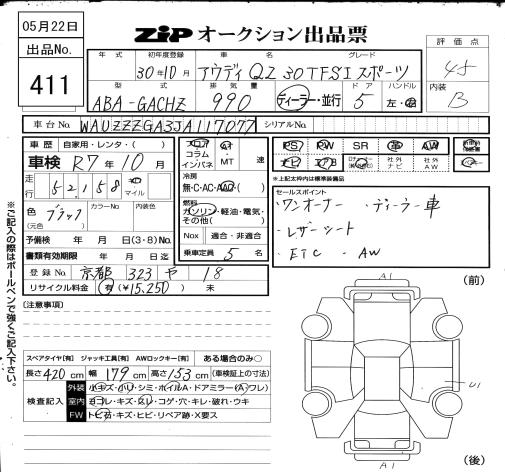 05月22日
ZIP オークション出品票
出品No.
411
年式 初年度登録 車名 グレード
30年10月 アウディ Q2 30TFSI スポーツ
型式 排気量 ドア ハンドル
ABA-GACHZ 990 ディーラー・並行 5 左・右
評価点
内装
B
車台No. WAUZZZGA3JA117077 シリアルNo.
車歴 自家用・レンタ・( )
車検 R7年10月
走行 52,158 km マイル
色 ブラック (元色) カラーNo. 内装色
予備検 年 月 日(3・8)No.
書類有効期限 年 月 日迄
登録No. 京都 323 や 18
リサイクル料金 有(¥15,250) 未
フロア AT
コラム
インパネ MT 速
冷房
無・C・AC・AAC
燃料
ガソリン・軽油・電気・
その他( )
Nox 適合・非適合
乗車定員 5 名
PS PW SR 革 AW
ナビ エアB 社外ナビ 社外AW
*上記太枠内は標準装備品
セールスポイント
・ワンオーナー ・ディーラー車
・レザーシート
・ETC ・AW
※ご記入の際はボールペンで強くご記入下さい。
[注意事項]
スペアタイヤ[有] ジャッキ工具[有] AWロックキー[有] ある場合のみ○
長さ 420 cm 幅 179 cm 高さ 153 cm (車検証上の寸法)
検査記入
外装 小キズ・小リ・シミ・ホイルA・ドアミラー(A)ワレ)
室内 ヨゴレ・キズ・スリ・コゲ・穴・キレ・破れ・ウキ
FW トビ石・キズ・ヒビ・リペア跡・X要ス
(前)
A1
U1
A1
(後)